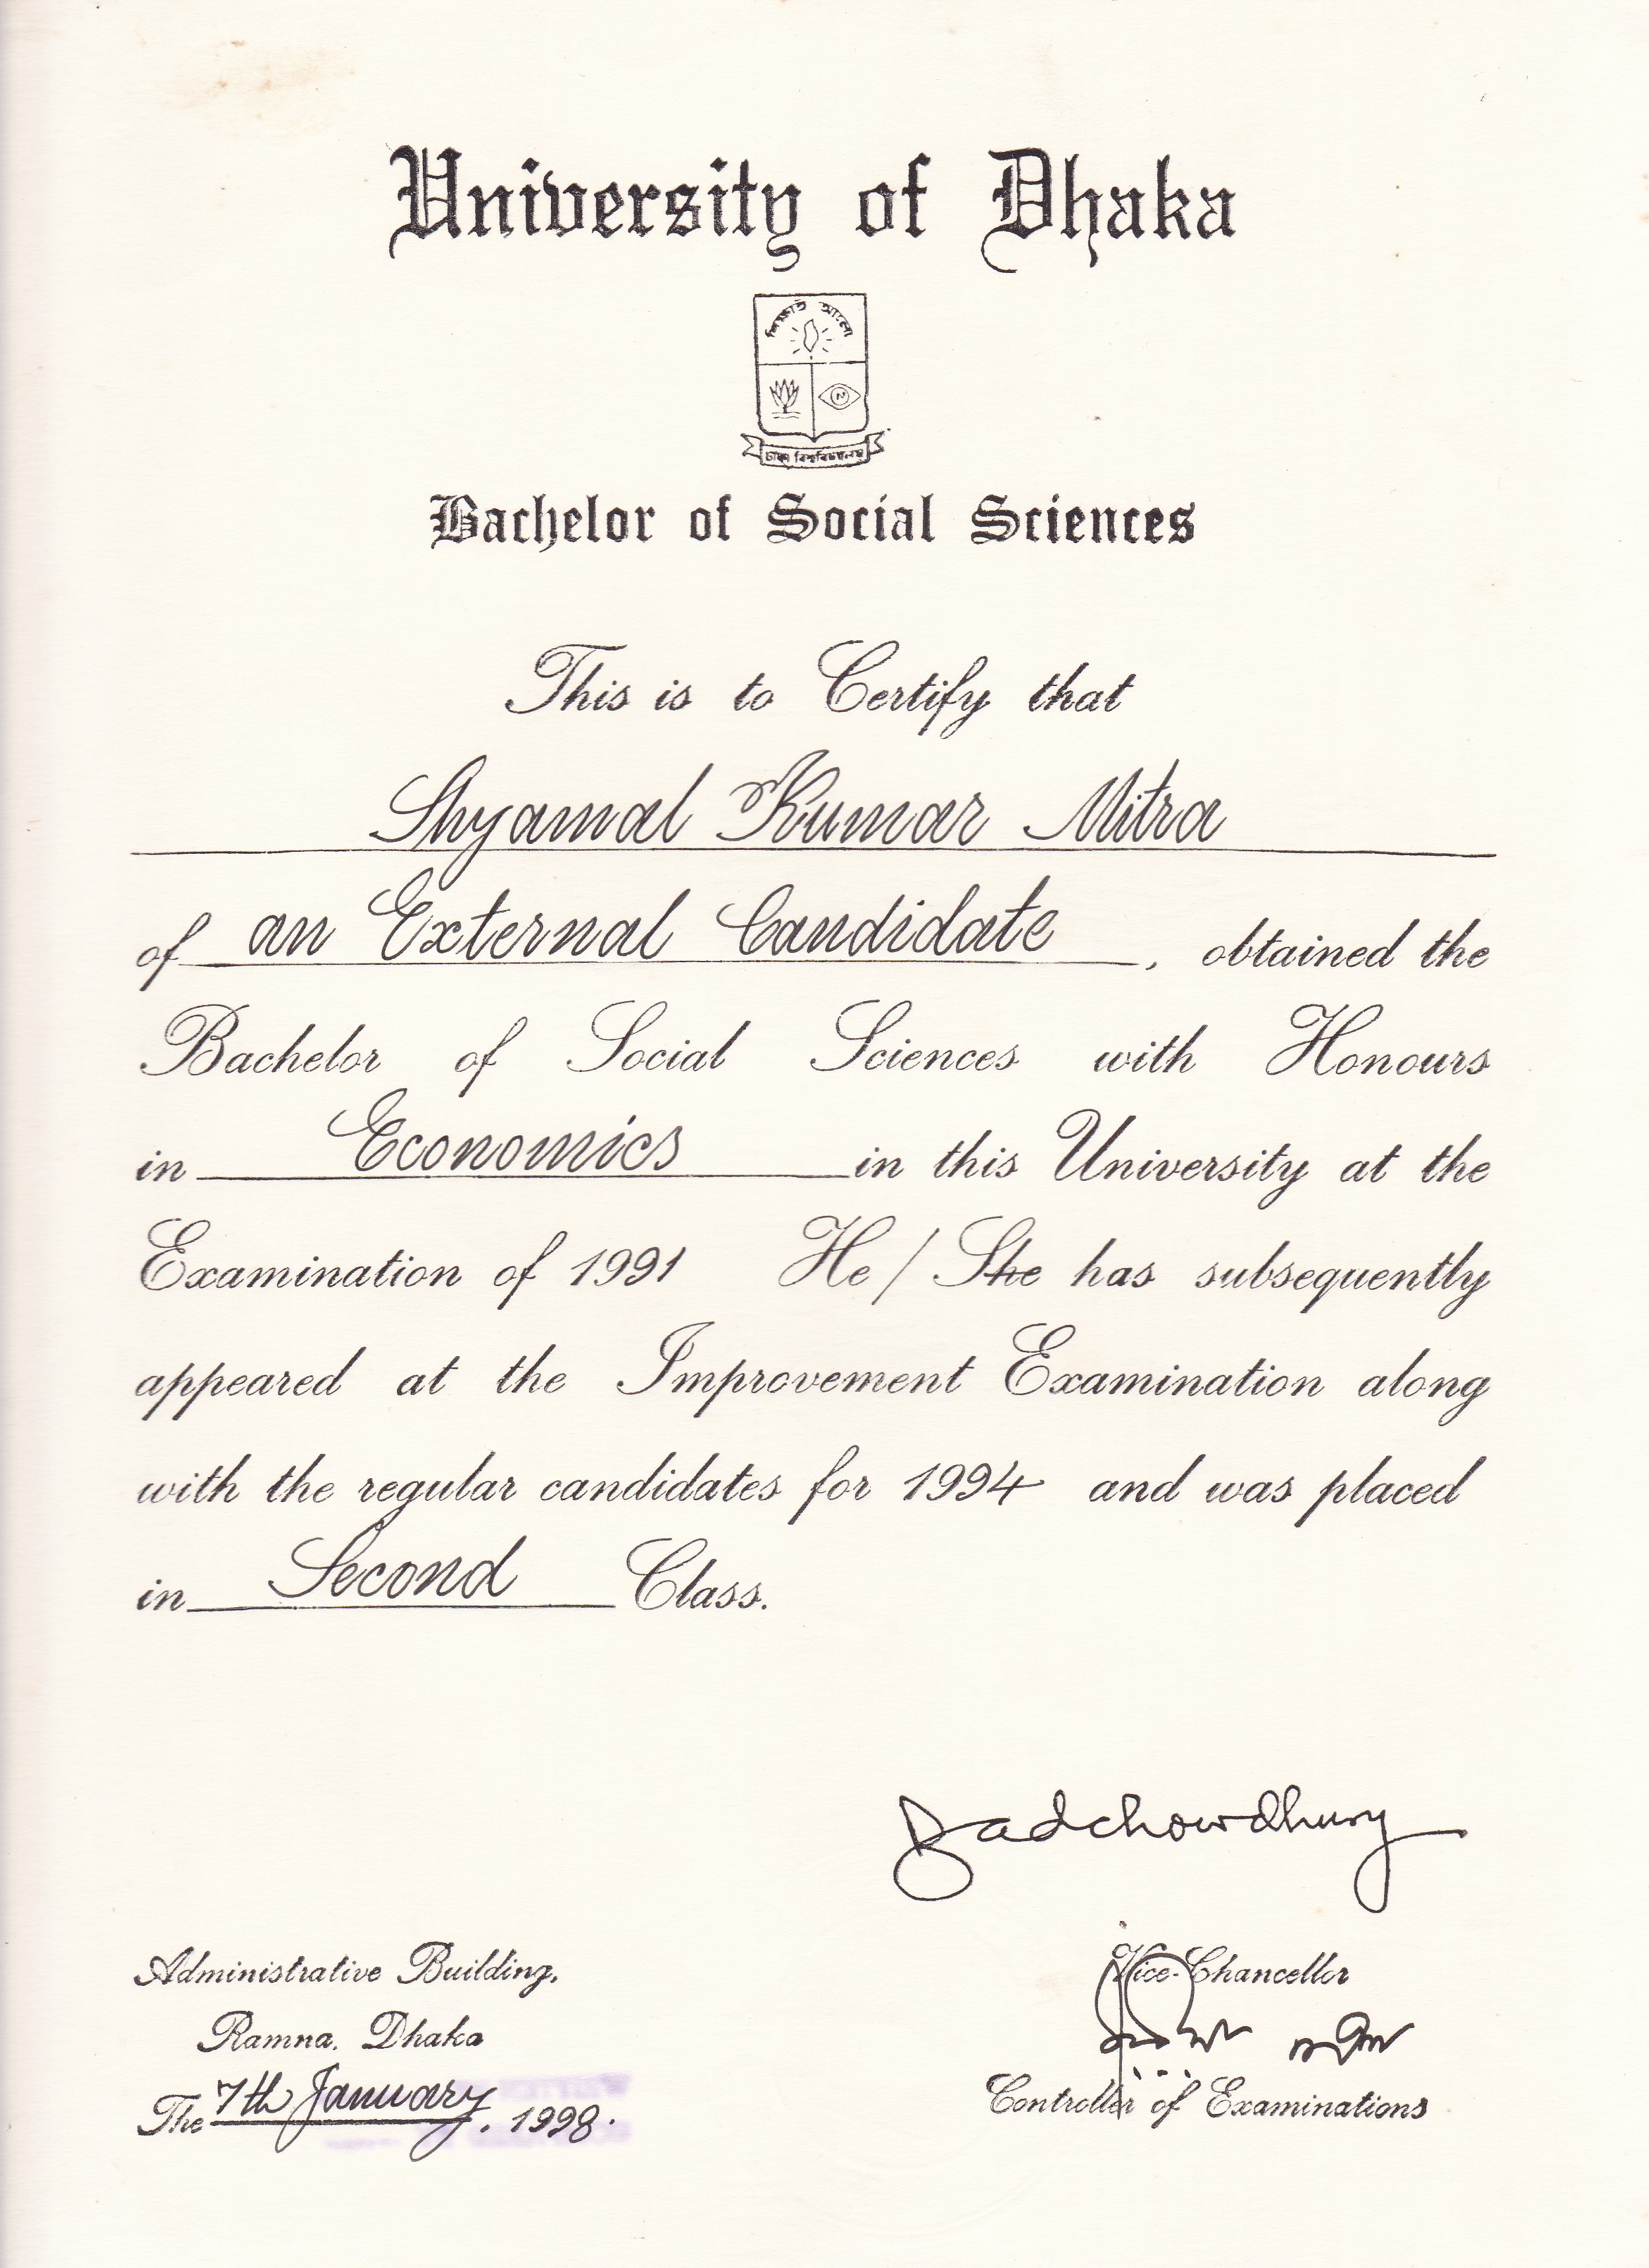 University of Dhaka
শিক্ষাই আলো
ঢাকা বিশ্ববিদ্যালয়
Bachelor of Social Sciences
This is to Certify that
Shyamal Kumar Mitra
of an External Candidate, obtained the
Bachelor of Social Sciences with Honours
in Economics in this University at the
Examination of 1991 He / She has subsequently
appeared at the Improvement Examination along
with the regular candidates for 1994 and was placed
in Second Class.
Administrative Building,
Ramna, Dhaka
The 7th January, 1998.
Vice-Chancellor
Controller of Examinations